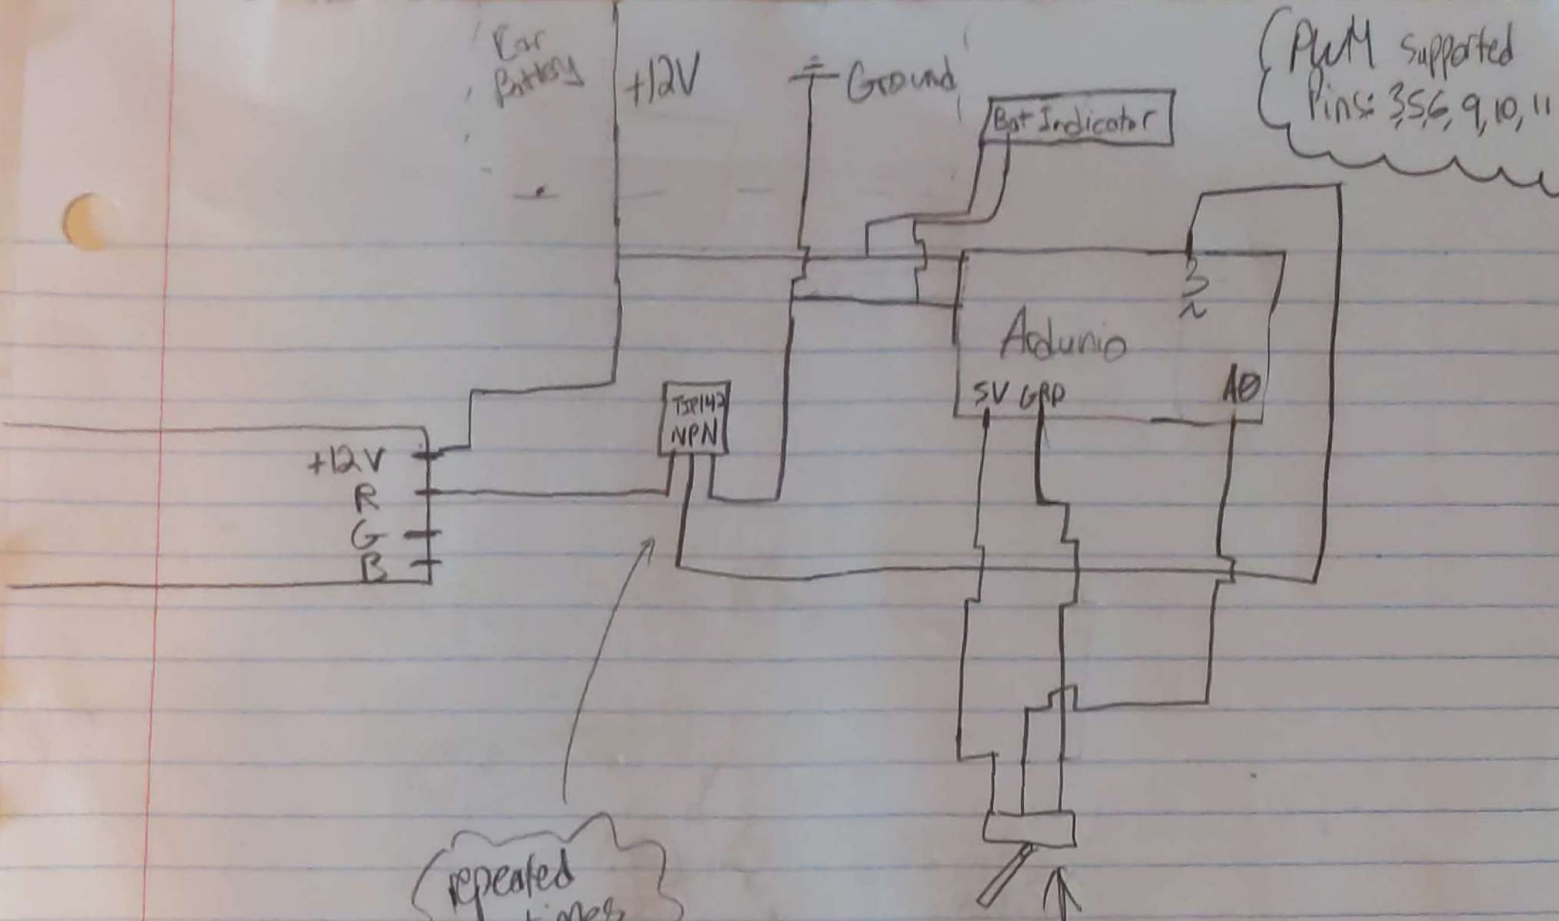 Car
Battery
+12V
Ground
Bat Indicator
PWM Supported
Pins: 3,5,6,9,10,11
3
~
Adunio
5V GRD
A0
TIP142
NPN
+12V
R
G
B
repeated
times